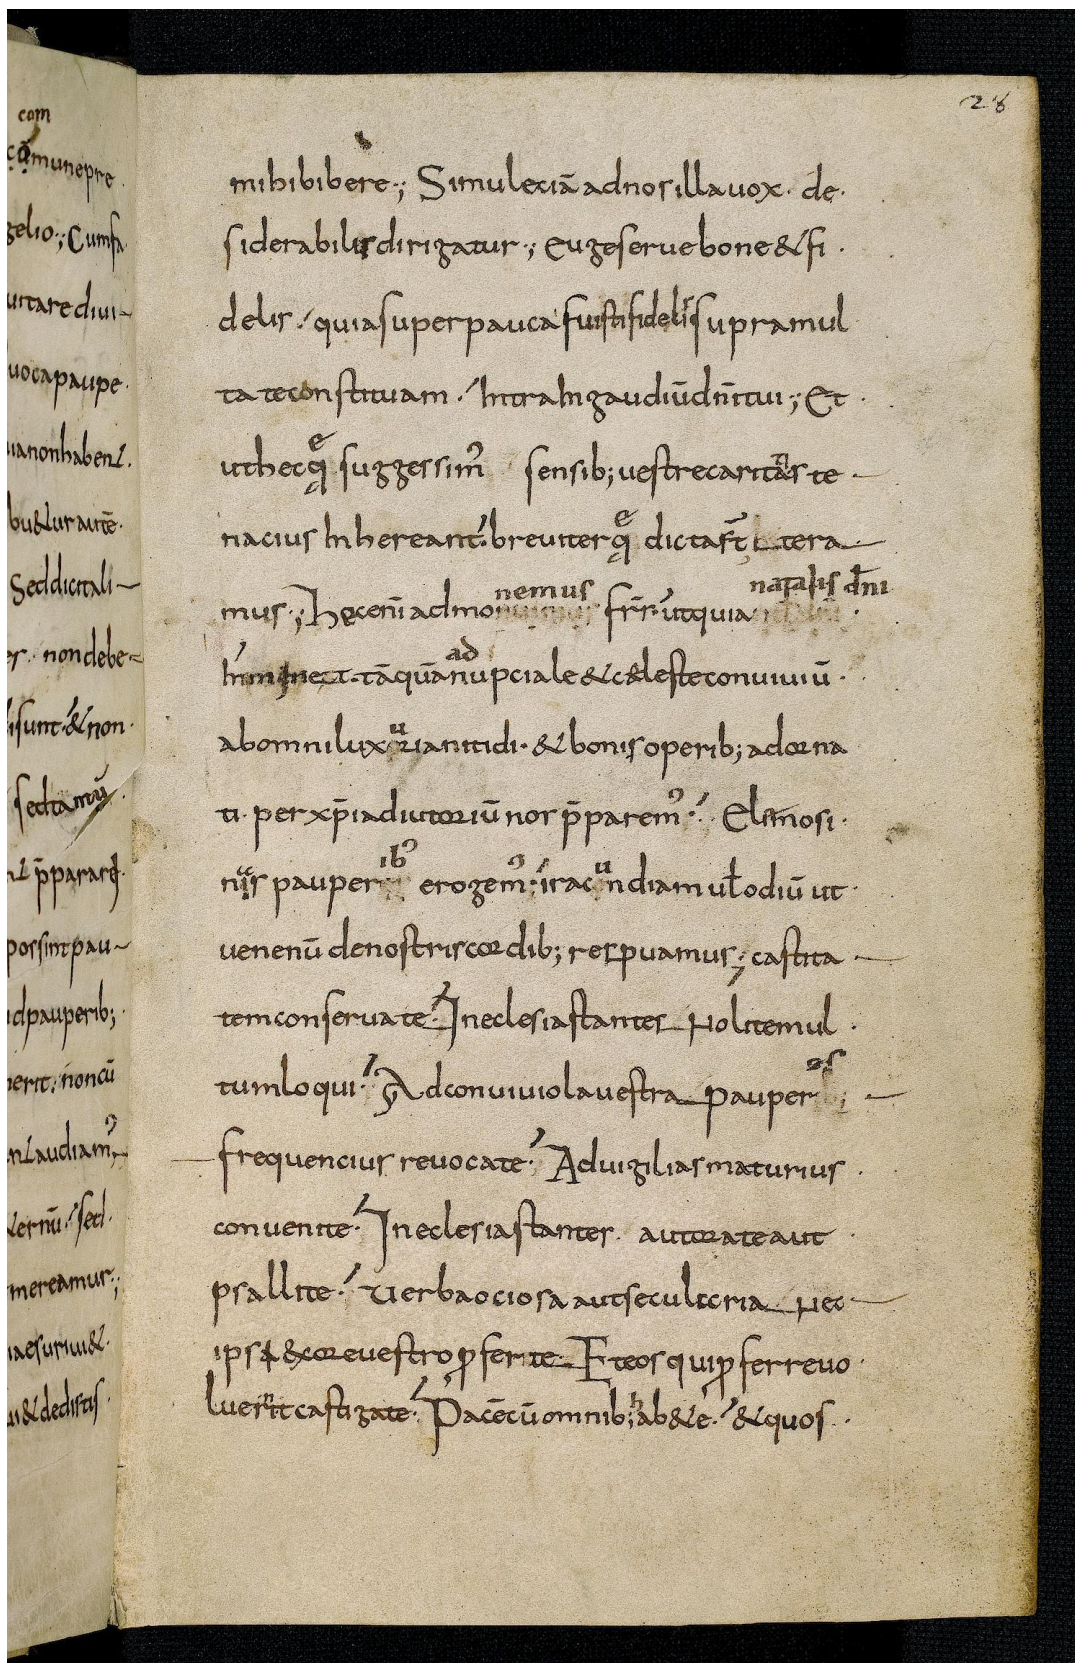 com
cōmunepre
gelio·; Cumfa
uitare diui-
uoca paupe·
uia non haben&.
bu&ur autē·
Sed dicit ali-
er· non debe-
sunt· & non·
sed tamū
p̄parare
possint pau-
ad pauperib;
erit: non cū
audiam᾽;
&ernū· sed·
mereamur·;
esuriui &·
ui & dedistis
28
mihi bibere·; Simul exiā ad nos illa uox· de·
siderabilis dirigatur·; Euge serue bone & fi·
delis· quia super pauca fuisti fidelis supra mul
ta te constituam· Intra In gaudiū dn̄i tui·; Et·
ut hec q̨ suggessim᾽ sensib; uestre caritatis te-
nacius Inhereant· breuiter q̨ dicta st̄ Itera-
nemus natalis dn̄i
mus·; Hęc enī admo fr̄r· ut quia
ad
Imminet· tāquā nupciale & cæleste conuiuiū·
ab omni luxuria nitidi· & bonis operib; adorna
ti· per xp̄i adiutoriū nos p̄parem᾽· Elimosi·
nas pauperib᾽ erogem᾽· iracundiam ul̄ odiū ut·
uenenū de nostris cordib; respuamus; castita-
tem conseruate· In eclesia stantes Nolite mul·
es
tum loqui· Ad conuiuiola uestra pauper-
frequencius reuocate· Ad uigilias maturius·
conuenite· In eclesia stantes· aut orate aut·
psallite· Uerba ociosa aut secularia Nec-
ips & ex ore uestro proferite Et eos qui proferre uo·
luerint castigate· Pacē cū omnib; hab&e· & quos·